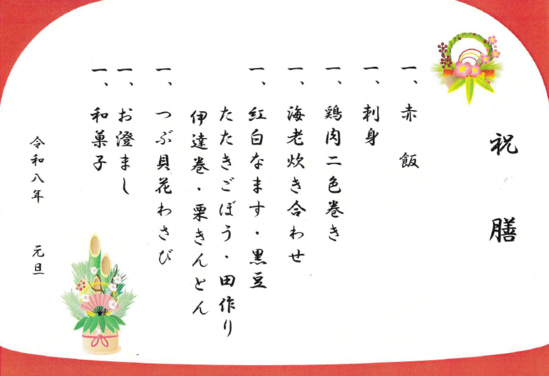 祝膳
一、赤飯
一、刺身
一、鶏肉二色巻き
一、海老炊き合わせ
一、紅白なます・黒豆
たたきごぼう・田作り
伊達巻・栗きんとん
一、つぶ貝花わさび
一、お澄まし
一、和菓子
令和八年　元旦